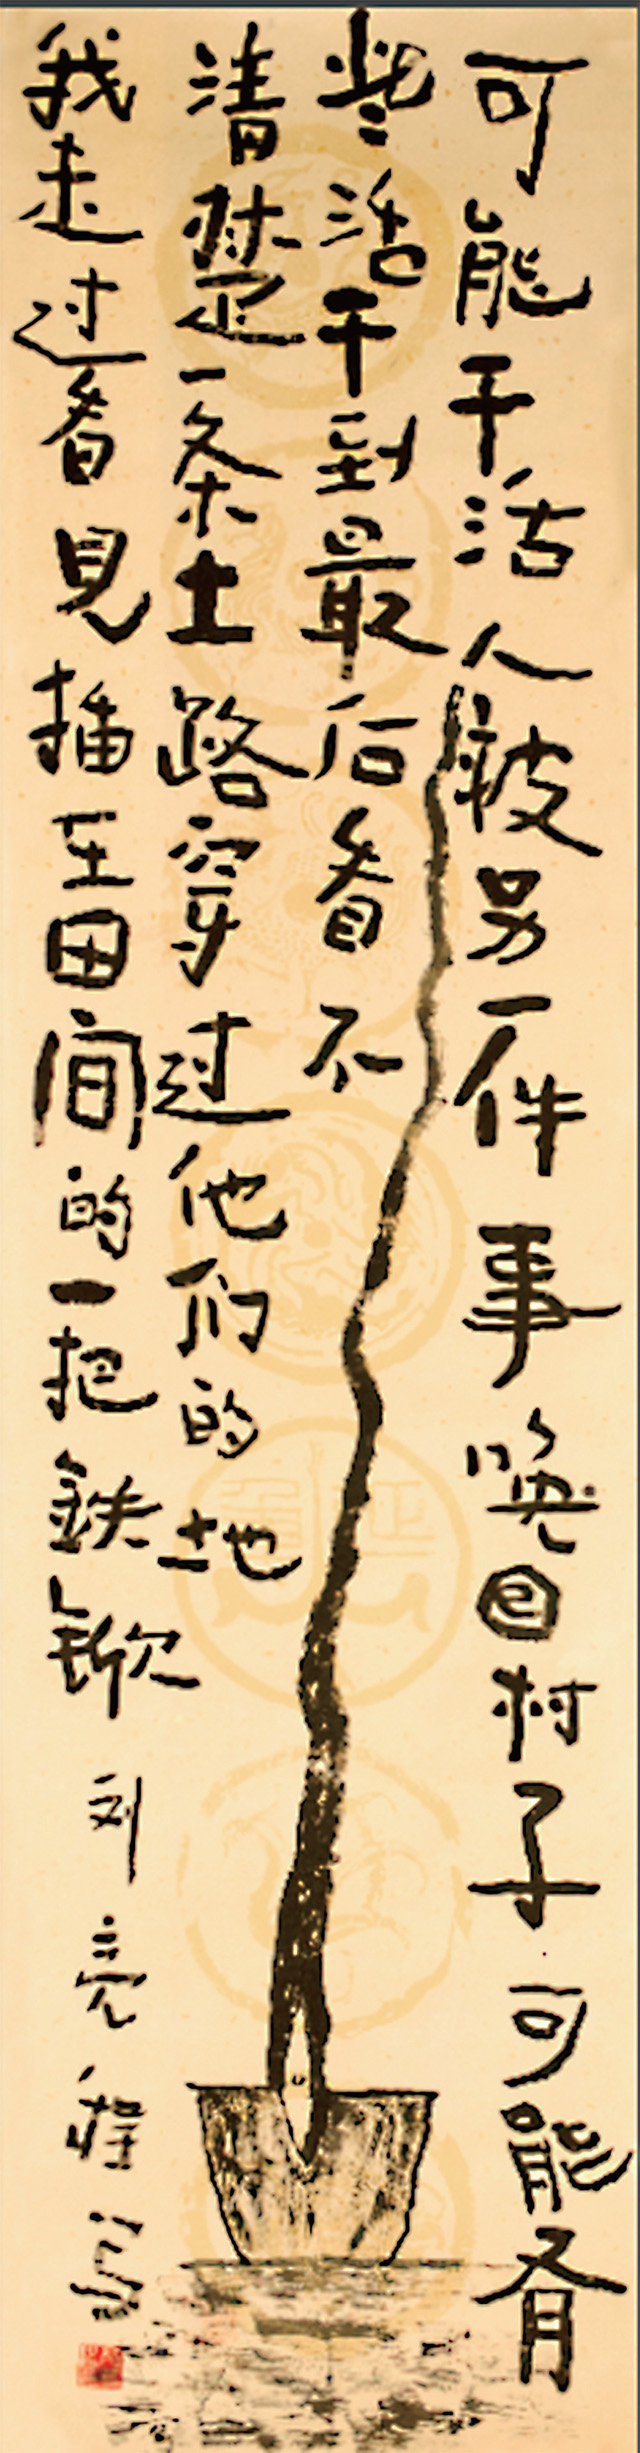 可能干活人被另一件事唤回村子可能有
些活干到最后看不
清楚一条土路穿过他们的地
我走过看见插在田间的一把鉄锨
刘亮程